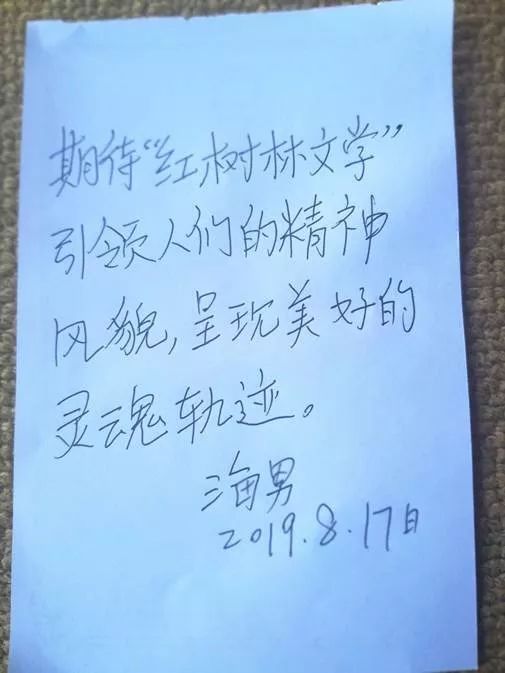 期待“红树林文学”
引领人们的精神
风貌,呈现美好的
灵魂轨迹。
海男
2019.8.17日